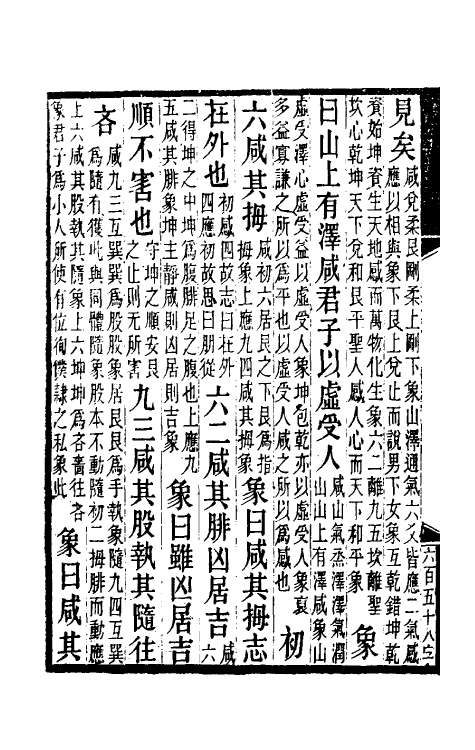 見矣咸兌柔艮剛柔上剛下象山澤通氣六爻皆應二氣感
應以相與象下艮上兌止而說男下女象互乾錯坤乾
資始坤資生天地感而萬物化生象六二離九五坎離聖
坎心乾坤天下兌和艮平聖人感人心而天下和平象
象
曰山上有澤咸君子以虛受人咸山氣烝澤澤氣潤
山山上有澤咸象山
虛受澤心虛受益以虛受人象坤包乾亦以虛受人象裒
多益寡謙之所以爲平也以虛受人咸之所以爲感也
初
六咸其拇咸初六居艮之下艮爲指
拇象上應九四咸其拇象
象曰咸其拇志
在外也初咸四故志曰在外
四應初故思曰朋從
六二咸其腓凶居吉咸
六
二得坤之中坤爲腹腓足之腹也上應九
五咸其腓象坤主靜咸則凶居則吉象
象曰雖凶居吉
順不害也守坤之順安艮
之止則无所害
九三咸其股執其隨往
吝咸九三互巽巽爲股股象居艮艮爲手執象隨九四互巽
爲隨有獲此與同體隨象股本不動隨初二拇腓而動應
上六咸其股執其隨象上六坤坤爲吝嗇往吝
象君子爲小人所使有位徇僕隸之私象此
象曰咸其
六百五十八